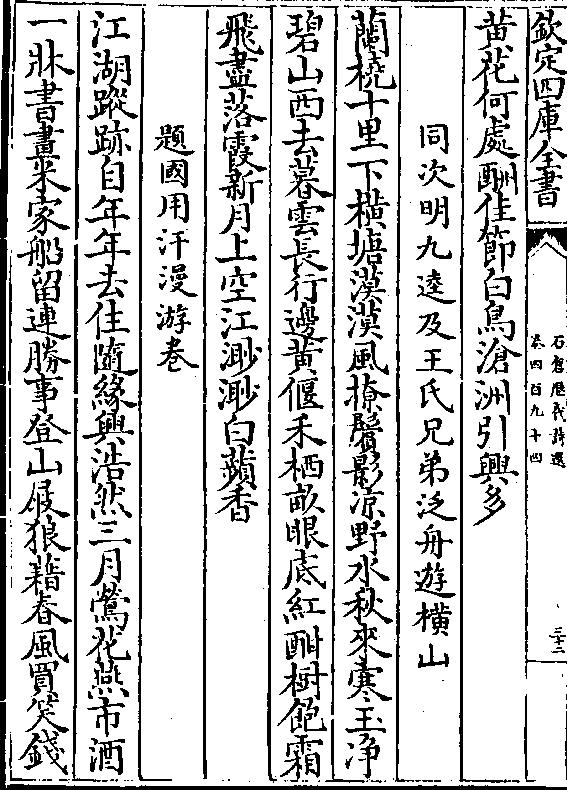 欽定四庫全書
石倉歷代詩選
卷四百九十四
三十二
黄花何處酬佳節白鳥滄洲引興多
同次明九逵及王氏兄弟泛舟遊横山
蘭橈十里下横塘漠漠風撩鬢影凉野水秋來寒玉净
碧山西去暮雲長行邊黄偃禾栖畝眼底紅酣樹飽霜
飛盡落霞新月上空江渺渺白蘋香
題國用汗漫游卷
江湖蹤跡自年年去住隨緣興浩然三月鶯花燕市酒
一牀書畫米家船留連勝事登山屐狼藉春風買笑錢